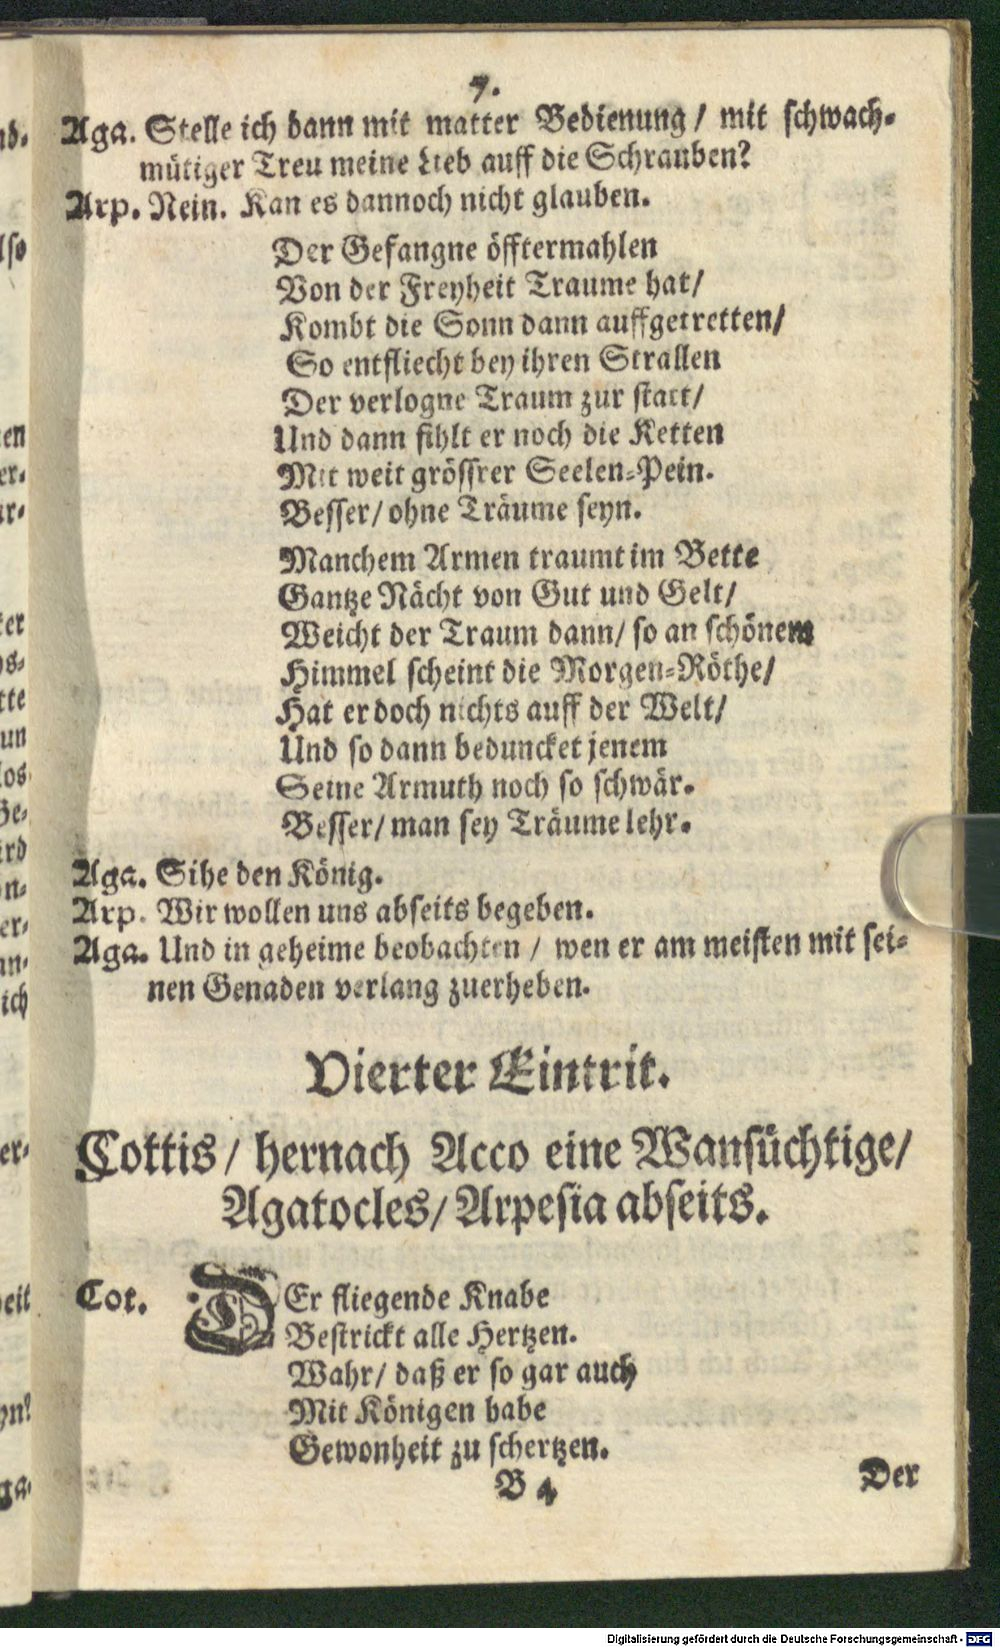 7.
Aga. Stelle ich dann mit matter Bedienung / mit schwach-
mütiger Treu meine Lieb auff die Schrauben?
Arp. Nein. Kan es dannoch nicht glauben.
Der Gefangne öfftermahlen
Von der Freyheit Traume hat/
Kombt die Sonn dann auffgetretten/
So entfliecht bey ihren Strallen
Der verlogne Traum zur statt/
Und dann fihlt er noch die Ketten
Mit weit grössrer Seelen-Pein.
Besser/ ohne Träume seyn.
Manchem Armen traumt im Bette
Gantze Nächt von Gut und Gelt/
Weicht der Traum dann/ so an schönem
Himmel scheint die Morgen-Röthe/
Hat er doch nichts auff der Welt/
Und so dann beduncket jenem
Seine Armuth noch so schwär.
Besser/ man sey Träume lehr.
Aga. Sihe den König.
Arp. Wir wollen uns abseits begeben.
Aga. Und in geheime beobachten / wen er am meisten mit sei-
nen Genaden verlang zuerheben.
Vierter Eintrit.
Cottis / hernach Acco eine Wansüchtige/
Agatocles/ Arpesia abseits.
Cot. DEr fliegende Knabe
Bestrickt alle Hertzen.
Wahr/ daß er so gar auch
Mit Königen habe
Gewonheit zu schertzen.
B 4
Der
Digitalisierung gefördert durch die Deutsche Forschungsgemeinschaft - DFG